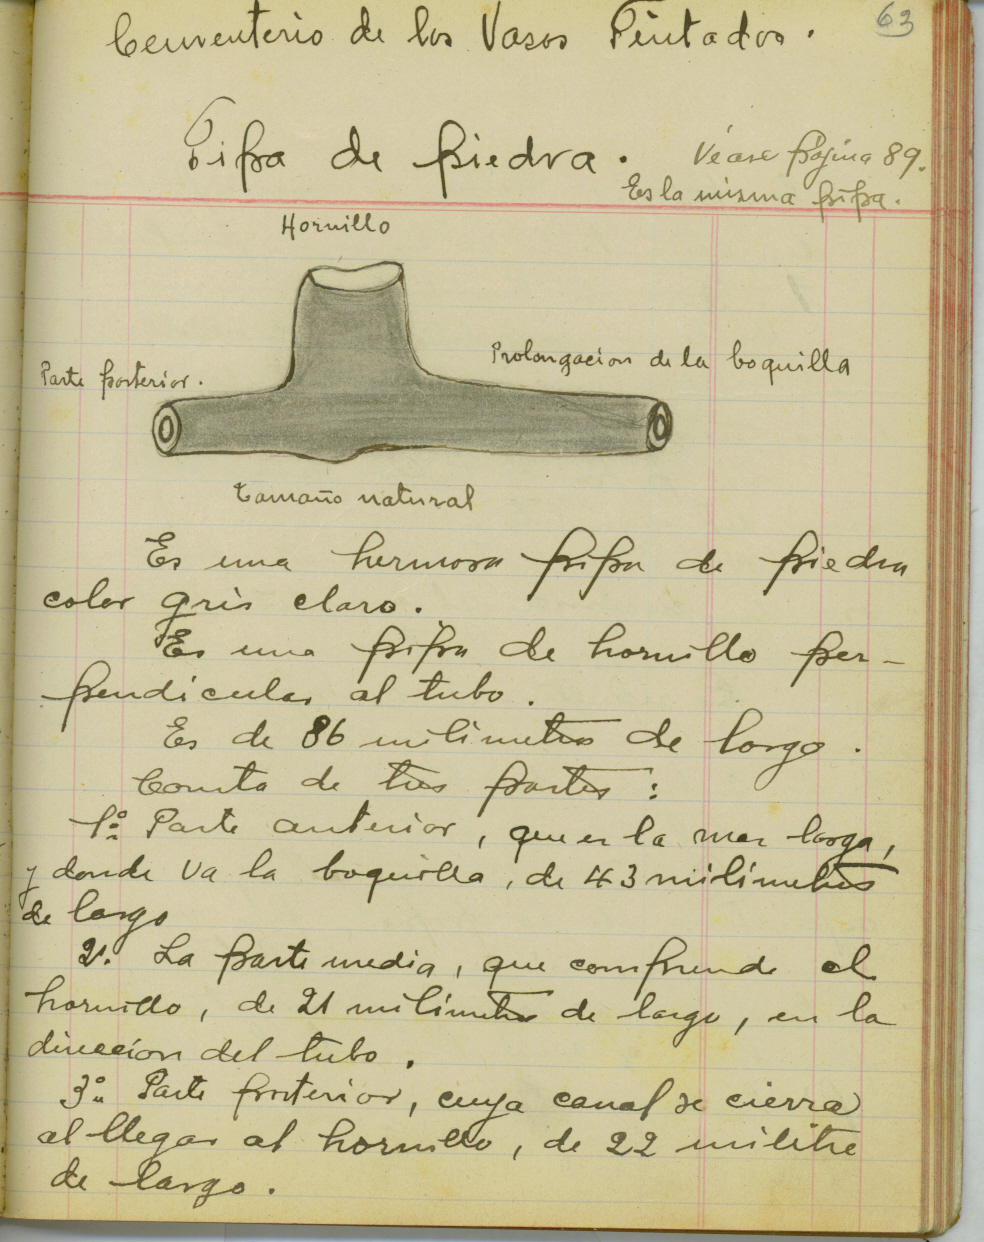 63
Cementerio de los Vasos Pintados.
Pipa de piedra. Véase página 89.
Es la misma pipa.
Hornillo
Prolongacion de la boquilla
Parte posterior.
tamaño natural
Es una hermosa pipa de piedra
color gris claro.
Es una pipa de hornillo per-
pendicular al tubo.
Es de 86 milímetros de largo.
Consta de tres partes:
1º: Parte anterior, que es la mas larga,
y donde va la boquilla, de 43 milímetros
de largo
2º. La parte media, que comprende el
hornillo, de 21 milímetros de largo, en la
direccion del tubo.
3º: Parte posterior, cuya canal se cierra
al llegar al hornillo, de 22
de largo.